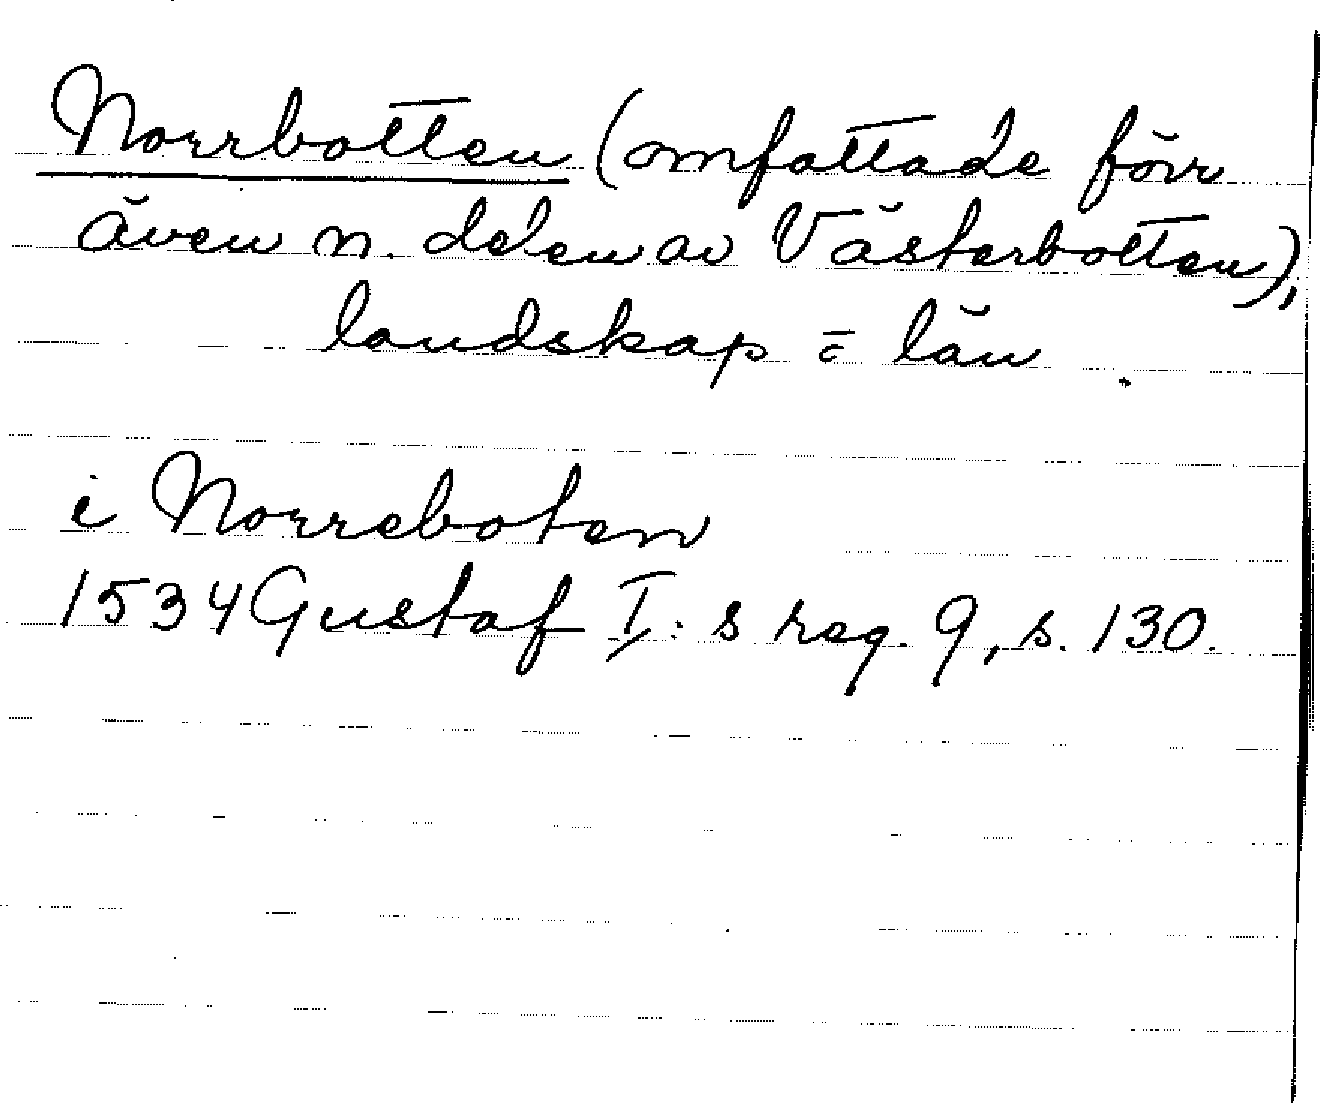 Norrbotten (omfattade förr
även n. delen av Västerbotten),
landskap = län
i Norreboten
1534 Gustaf I:s reg. 9, s. 130.